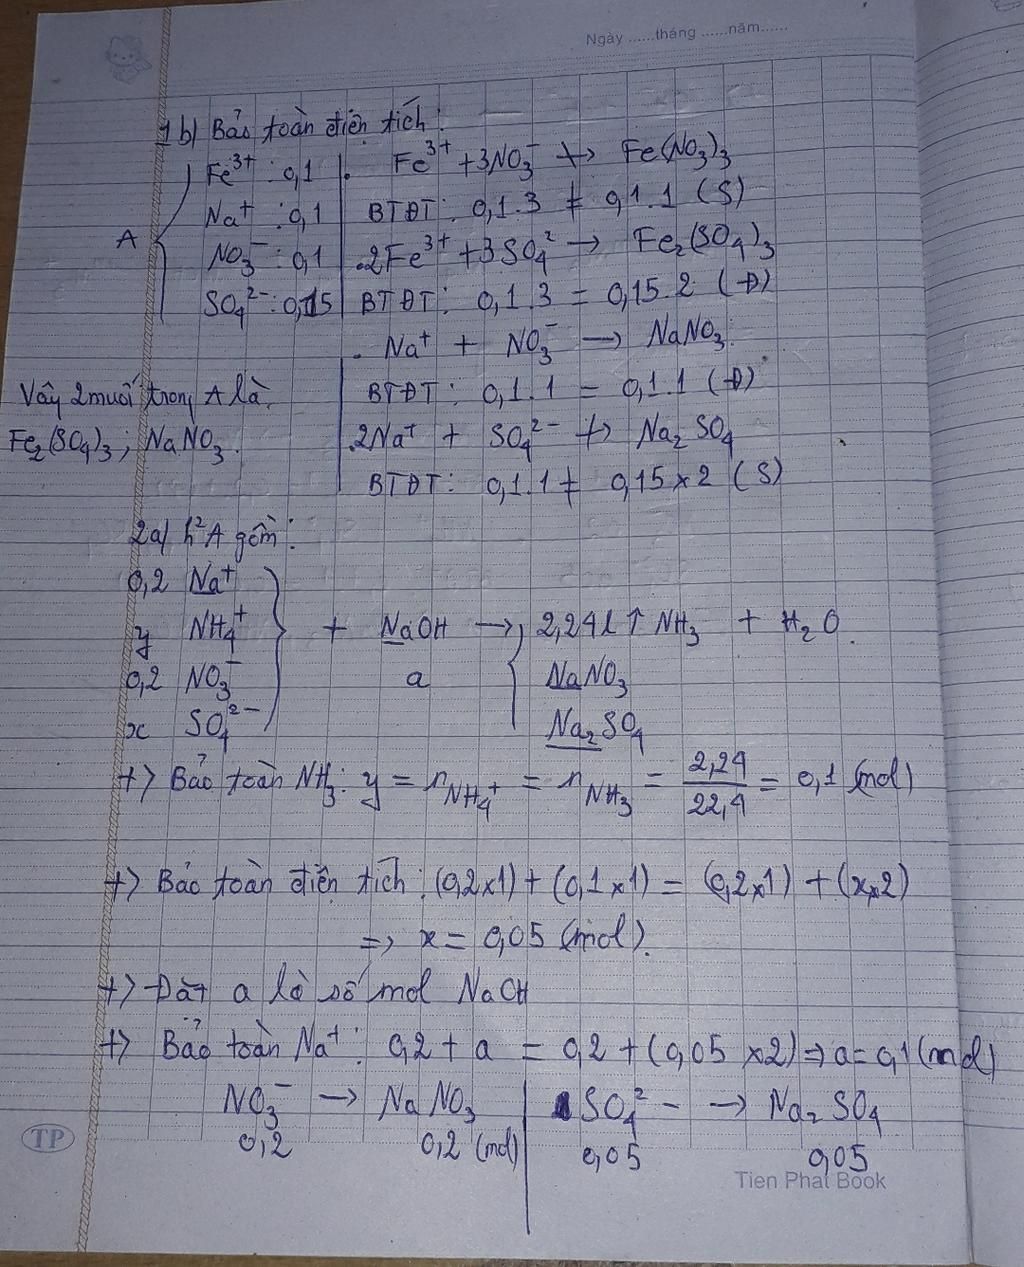 Ngày ......tháng ......năm......
1b) Bảo toàn điện tích:
A
Fe³⁺ : 0,1
Na⁺ : 0,1
NO₃⁻ : 0,1
SO₄²⁻ : 0,15
. Fe³⁺ + 3NO₃⁻ ↛ Fe(NO₃)₃
BTĐT: 0,1.3 ≠ 0,1.1 (S)
.2Fe³⁺ + 3SO₄² → Fe₂(SO₄)₃
BTĐT: 0,1.3 = 0,15.2 (Đ)
. Na⁺ + NO₃⁻ → NaNO₃.
BTĐT: 0,1.1 = 0,1.1 (Đ)
.2Na⁺ + SO₄²⁻ ↛ Na₂SO₄
BTĐT: 0,1.1 ≠ 0,15×2 (S)
Vậy 2 muối trong A là
Fe₂(SO₄)₃; NaNO₃.
2a) h² A gồm:
0,2 Na⁺
y NH₄⁺ + NaOH → 2,24l ↑ NH₃ + H₂O.
0,2 NO₃⁻ a NaNO₃
x SO₄²⁻ Na₂SO₄
+> Bảo toàn NH₃: y = nNH₄⁺ = nNH₃ = 2,24/22,4 = 0,1 (mol)
+> Bảo toàn điện tích: (0,2×1) + (0,1×1) = (0,2×1) + (x×2)
=> x = 0,05 (mol).
+> Đặt a là số mol NaOH
+> Bảo toàn Na⁺: 0,2 + a = 0,2 + (0,05 ×2) => a = 0,1 (mol)
NO₃⁻ → NaNO₃ SO₄²⁻ → Na₂SO₄
0,2 0,2 (mol) 0,05 0,05
TP
Tien Phat Book